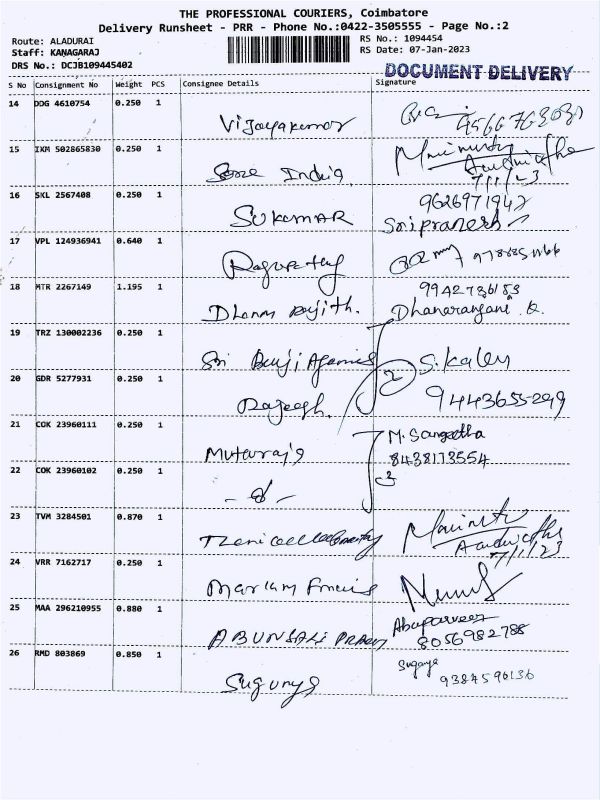 THE PROFESSIONAL COURIERS, Coimbatore
Delivery Runsheet - PRR - Phone No.:0422-3505555 - Page No.:2
Route: ALADURAI
RS No.: 1094454
Staff: KANAGARAJ
RS Date: 07-Jan-2023
DRS No.: DCJB109445402
DOCUMENT DELIVERY
S No Consignment No Weight PCS Consignee Details Signature
14 DDG 4610754 0.250 1
Vijayakumar
15 IKM 502865830 0.250 1
India
7/1/23
16 SKL 2567408 0.250 1
9626971942
SUKUMAR Sripranesh
17 VPL 124936941 0.640 1
Ragupathy
18 MTR 2267149 1.195 1
9942736183
Dhanarangani. R.
19 TRZ 130002236 0.250 1
Sri S. Kaley
20 GDR 5277931 0.250 1
2
Rajeesh. 9443655299
21 COK 23960111 0.250 1
M. Sangeetha
Muturaja 8438173554
22 COK 23960102 0.250 1
23 TVM 3284501 0.870 1
7/1/23
24 VRR 7162717 0.250 1
Mariam Francis
25 MAA 296210955 0.880 1
Abuparveen
8056982788
26 RMD 803869 0.850 1
Suguna
9384596136
Sugunya